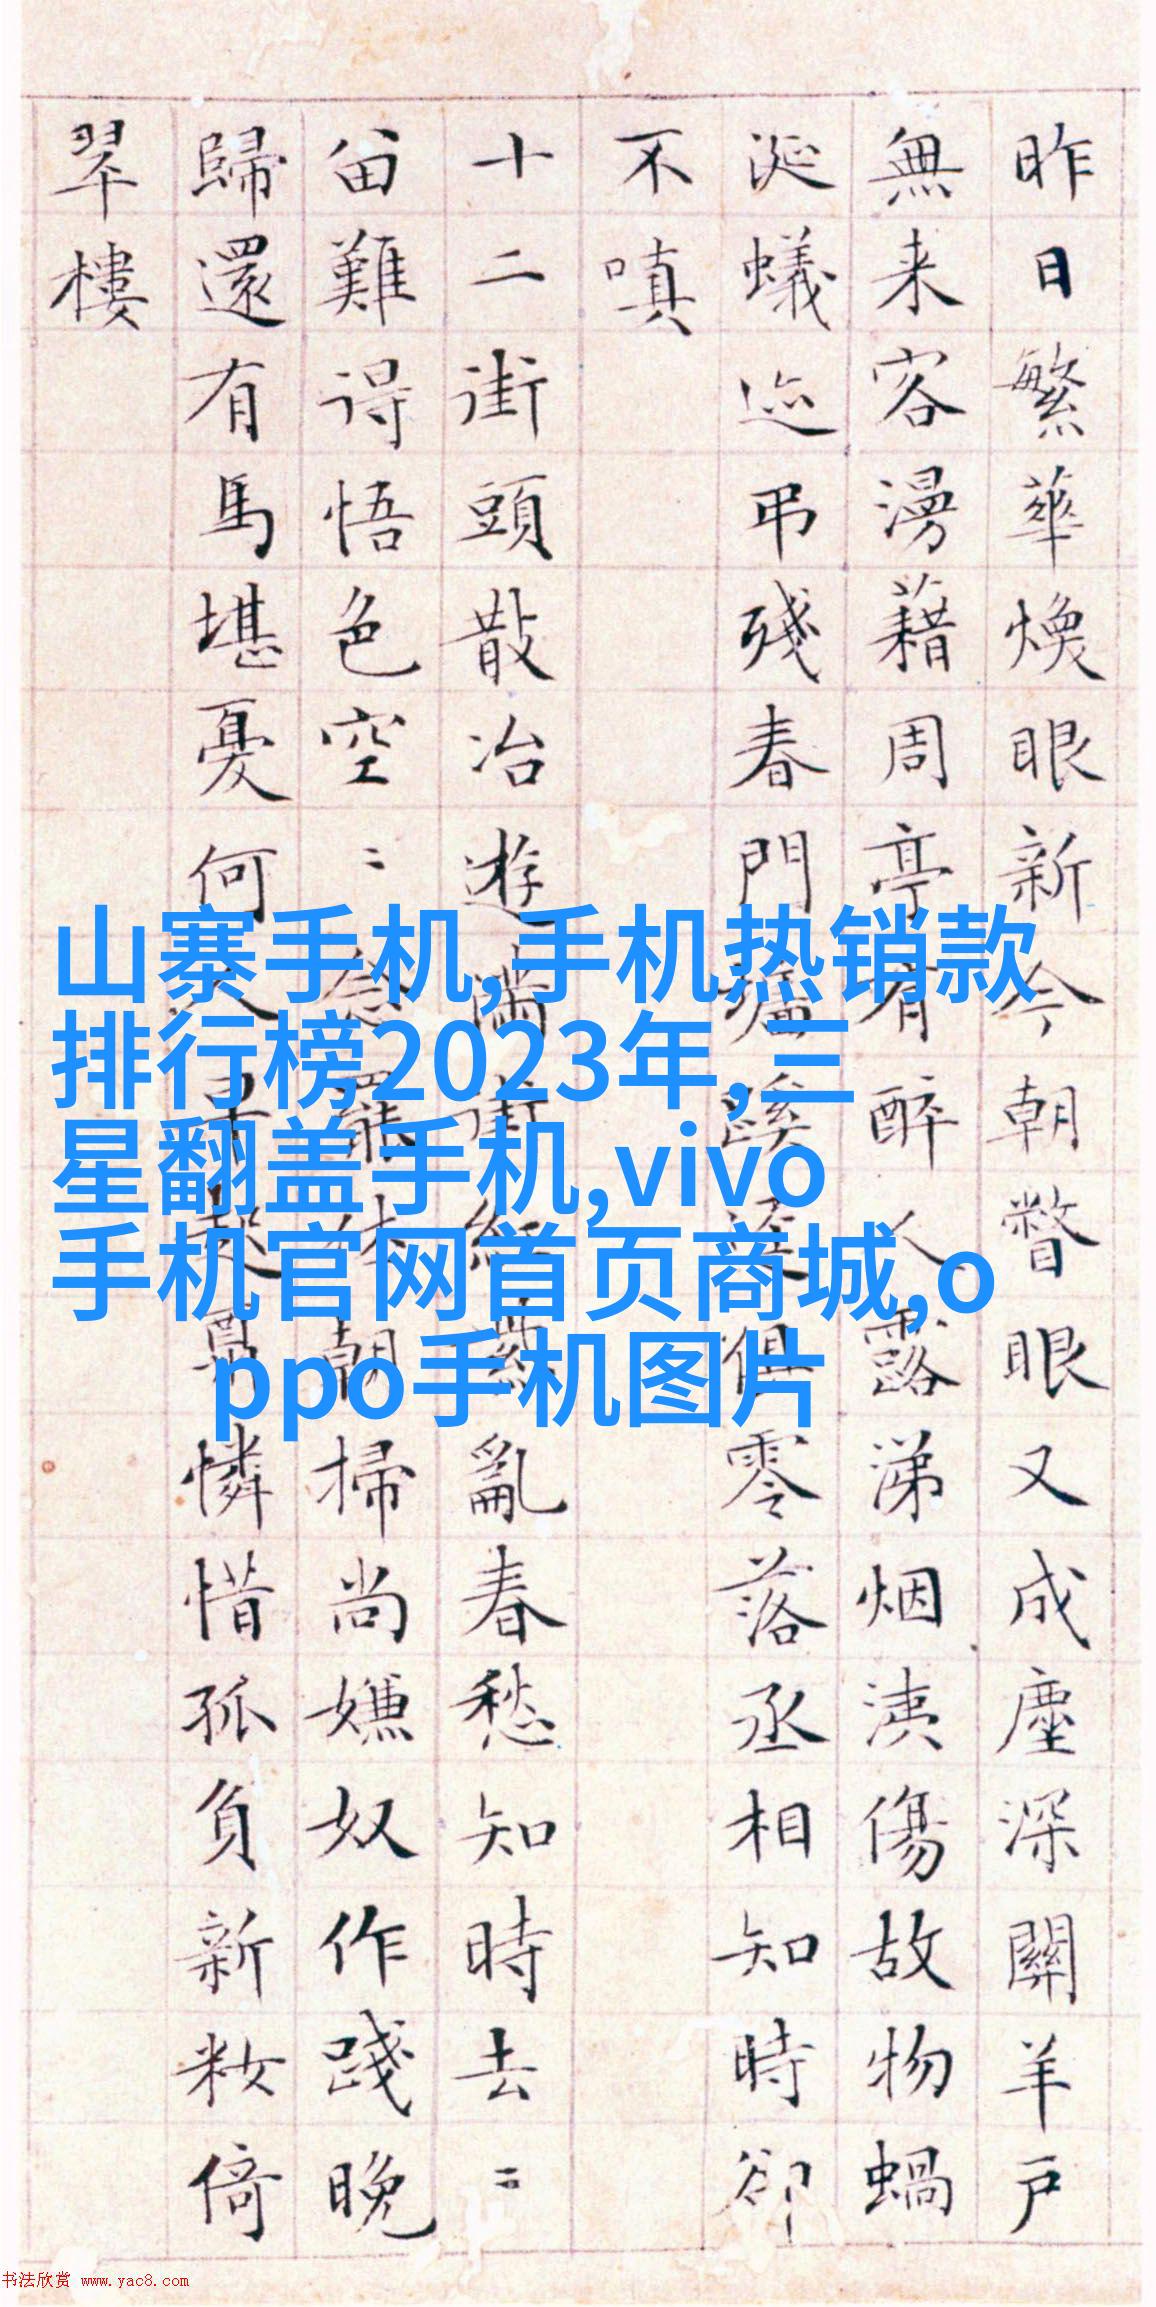 昨日繁華煥眼新今朝瞥眼又成塵深關羊戶
無来客漫藉周亭有醉人露涕烟洟傷故物蝸
涎蟻迹弔殘春門墻蹊逕俱零落丞相知時卻
不嗔
十二街頭散冶遊滿街紅紫亂春愁知時去〻
畱難得悟色空〻念罷休朝掃尚嫌奴作踐晚
歸還有馬堪憂何人早起憐惜孤負新粧倚
翠樓
山寨手机,手机热销款
排行榜2023年,三
星翻盖手机,vivo
手机官网首页商城,o
ppo手机图片
书法欣赏 www.yac8.com